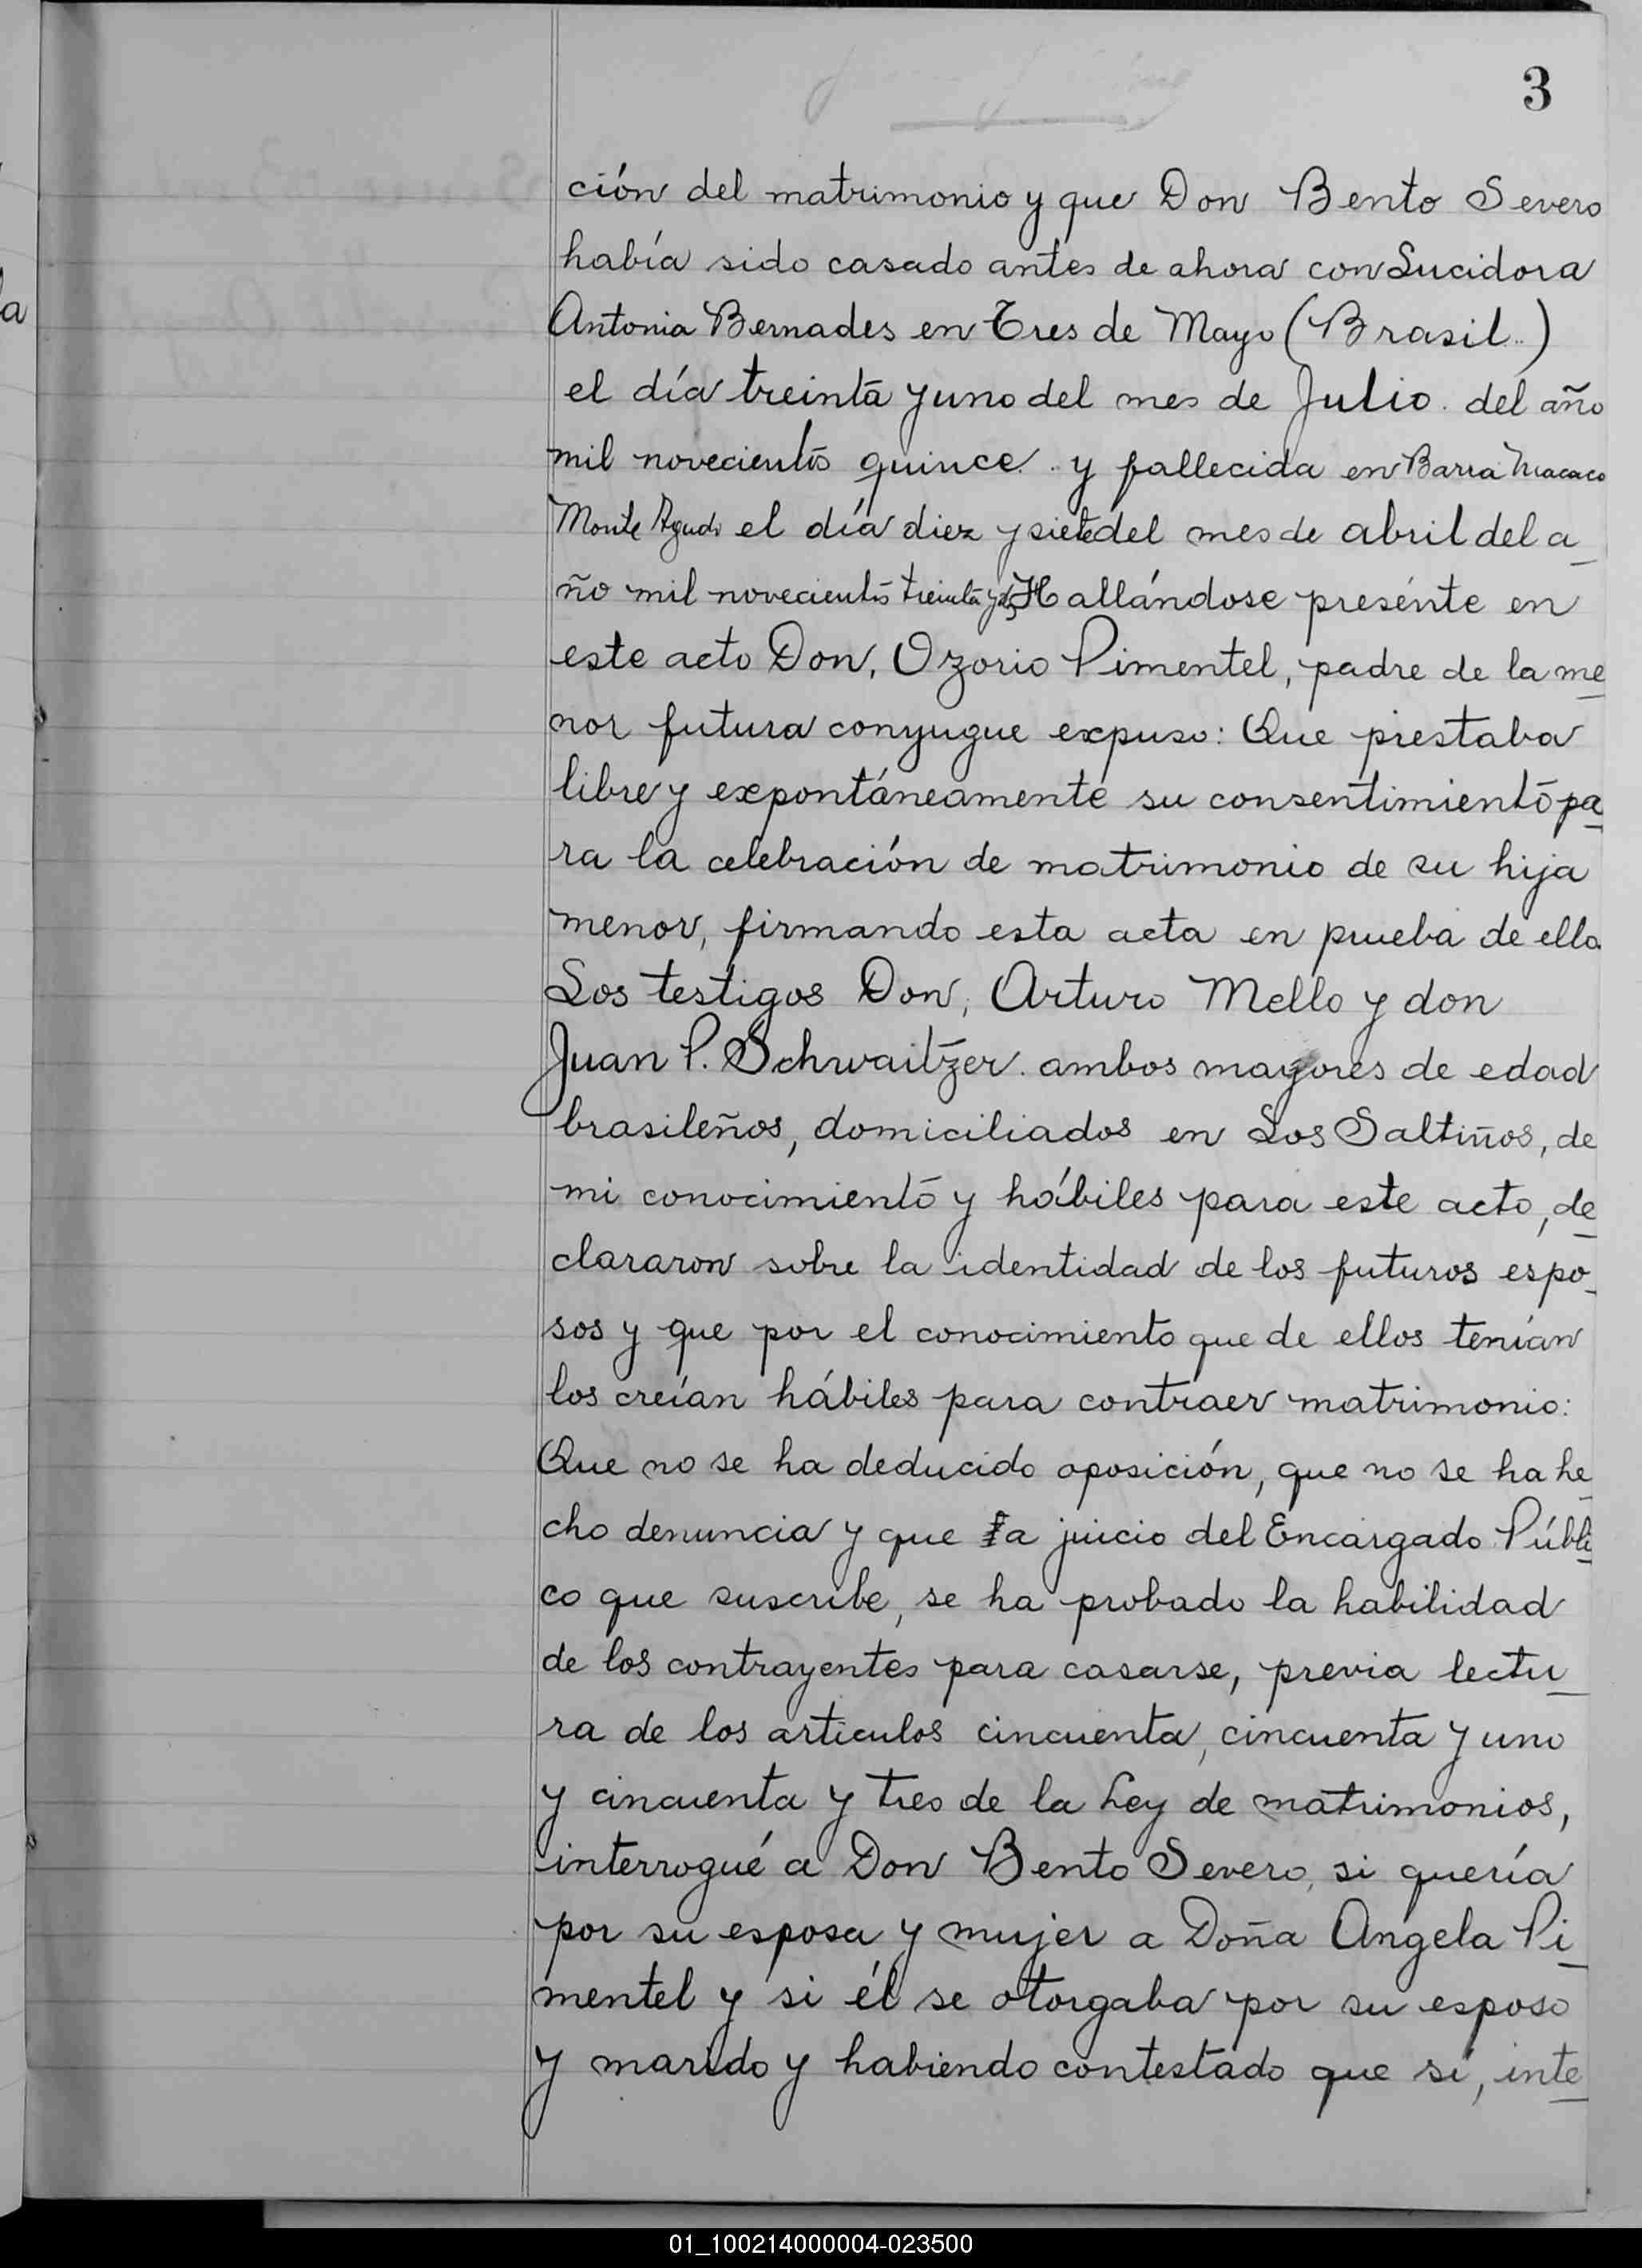 3
ción del matrimonio y que Don Bento Severo
había sido casado antes de ahora con Lucidora
Antonia Bernades en Tres de Mayo (Brasil..)
el día treinta y uno del mes de Julio. del año
mil novecientos quince. y fallecida en Barra Macaco
Monte Agudo el día diez y siete del mes de abril del a
ño mil novecientos treinta y Hallándose presénte en
este acto Don, Ozorio Pimentel, padre de la me
nor futura conyugue expuso: Que prestaba
libre y expontáneamente su consentimiento pa
ra la celebración de matrimonio de su hija
menor, firmando esta acta en prueba de ello.
Los testigos Don, Arturo Mello y don
Juan P. Schwaitzer. ambos mayores de edad
brasileños, domiciliados en Los Saltiños, de
mi conocimiento y hábiles para este acto, de
clararon sobre la identidad de los futuros espo
sos y que por el conocimiento que de ellos tenían
los creían hábiles para contraer matrimonio:
Que no se ha deducido oposición, que no se ha he
cho denuncia y que a juicio del Encargado Públi
co que suscribe, se ha probado la habilidad
de los contrayentes para casarse, previa lectu
ra de los articulos cincuenta, cincuenta y uno
y cincuenta y tres de la Ley de matrimonios,
interrogué a Don Bento Severo, si quería
por su esposa y mujer a Doña Angela Pi
mentel y si él se otorgaba por su esposo
y marido y habiendo contestado que sí, inte
01_100214000004-023500